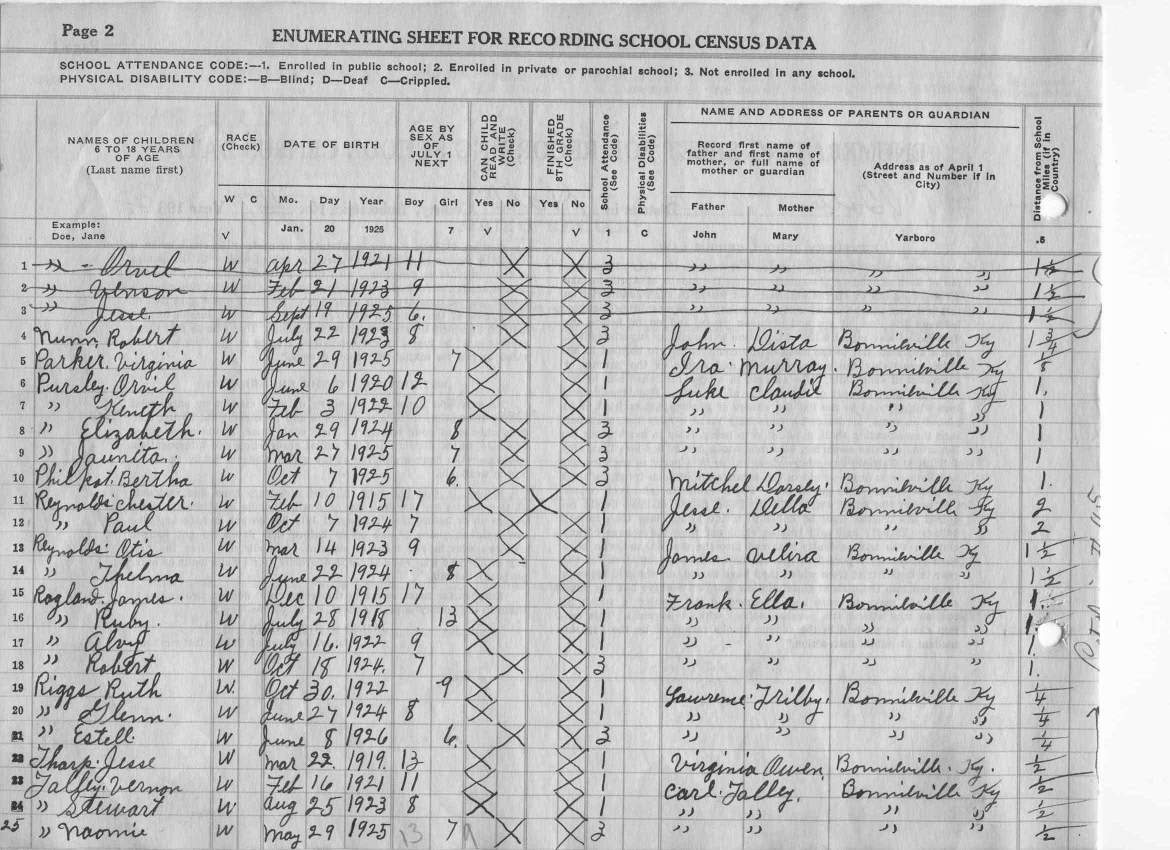 Page 2
ENUMERATING SHEET FOR RECORDING SCHOOL CENSUS DATA
SCHOOL ATTENDANCE CODE:—1. Enrolled in public school; 2. Enrolled in private or parochial school; 3. Not enrolled in any school.
PHYSICAL DISABILITY CODE:—B—Blind; D—Deaf C—Crippled.
NAMES OF CHILDREN 6 TO 18 YEARS OF AGE (Last name first) RACE (Check) DATE OF BIRTH AGE BY SEX AS OF JULY 1 NEXT CAN CHILD READ AND WRITE (Check) FINISHED 8TH GRADE (Check) School Attendance (See Code) Physical Disabilities (See Code) NAME AND ADDRESS OF PARENTS OR GUARDIAN Distance from School Miles (if in Country)
Record first name of father and first name of mother, or full name of mother or guardian Address as of April 1 (Street and Number if in City)
W C Mo. Day Year Boy Girl Yes No Yes No Father Mother
Example: Doe, Jane V Jan. 20 1925 7 V V 1 C John Mary Yarboro .5
1 " - Orvil W Apr 27 1921 11 X X 3 " " " " 1 1/2
2 " Venson W Feb 21 1923 9 X X 3 " " " " 1 1/2
3 " Jesse W Sept 19 1925 6. X X 3 " " " " 1 1/2
4 Nunn, Robert W July 22 1923 8 X X 3 John. Dista Bonnieville Ky 1 3/4
5 Parker. Virginia W June 29 1925 7 X X 1 Ira. Murray. Bonnieville Ky 1/8
6 Pursley. Orvil W June 6 1920 12 X X 1 Luke Claudie Bonnieville Ky 1.
7 " Keneth W Feb 3 1922 10 X X 1 " " " " 1
8 " Elizabeth. W Jan 29 1924 8 X X 3 " " " " 1
9 " Jaunita. W Mar 27 1925 7 X X 3 " " " " 1
10 Philpot. Bertha W Oct 7 1925 6. X X 3 Mitchel Dorsey. Bonnieville Ky 1.
11 Reynolds Chester. W Feb 10 1915 17 X X 1 Jesse. Della Bonnieville Ky 2
12 " Paul W Oct 7 1924 7 X X 1 " " " " 2
13 Reynolds. Otis W Mar 14 1923 9 X X 1 James Bonnieville Ky 1 1/2
14 " Thelma W June 22 1924 8 X X 1 " " " " 1 1/2
15 Ragland. James. W Dec 10 1915 17 X X 1 Frank. Ella. Bonnieville Ky 1.
16 " Ruby. W July 28 1918 13 X X 1 " " " " 1.
17 " Alvy W July 16. 1922 9 X X 1 " " " " 1.
18 " Robert W Oct 18 1924. 7 X X 3 " " " " 1.
19 Riggs Ruth W. Oct 30. 1922 9 X X 1 Lawrence. Trilby. Bonnieville Ky 1/4
20 " Glenn. W June 27 1924 8 X X 1 " " " " 1/4
21 " Estell W June 8 1926 6. X X 3 " " " " 1/4
22 Tharp. Jesse W Mar 22 1919. 13 X X 1 Virginia Owen, Bonnieville. Ky. 1/2
23 Talley. Vernon W Feb 16 1921 11 X X 1 Carl. Talley. Bonnieville Ky 1/2
24 " Stewart W Aug 25 1923 8 X X 1 " " " " 1/2
25 " Naomie W May 29 1925 13 7 9 X X 3 " " " " 1/2